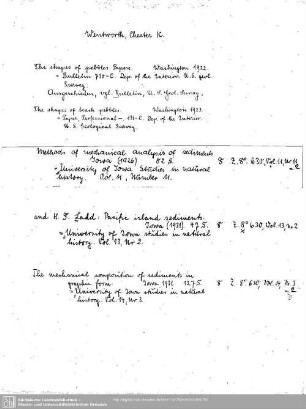 Wentworth, Chester K.
The shapes of pebbles. Papers Washington 1922.
= Bulletin 730-C. Dep. of the Interior U.S. Geol. Survey.
Ausgeschieden, vgl. Bulletin, U.S. Geol. Survey.
The shapes of beach pebbles. Washington 1923.
= Paper, Professional-, 131-C. Dep. of the Interior
U.S. Geological Survey.
Methods of mechanical analysis of sediments
Iowa (1926) 52 S.
= University of Iowa Studies in natural
history. Vol. 11, Number 11.
8° Z. 8° 630, Vol. 11, Nr. 11
and H. S. Ladd: Pacific island sediments.
Iowa (1931) 47 S.
= University of Iowa studies in natural
history. Vol. 13, Nr 2.
8° Z. 8° 630, Vol. 13, Nr. 2
The mechanical composition of sediments in
graphic form. Iowa 1931 127 S.
= University of Iowa studies in natural
history. Vol. 14, Nr 3.
8° Z. 8° 630, Vol. 14 Nr. 3